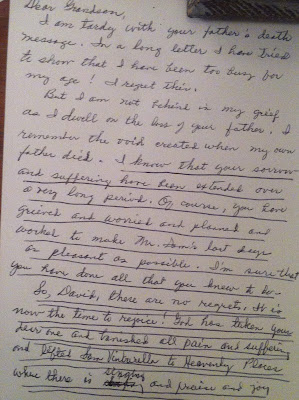 Dear Grandson,
I am tardy with your father's death
message. In a long letter I have tried
to show that I have been too busy for
my age! I regret this.
But I am not behind in my grief
as I dwell on the loss of your father. I
remember the void created when my own
father died. I know that your sorrow
and suffering have been extended over
a very long period. Of course, you have
grieved and worried and planned and
worked to make Mr. Sam's last days
as pleasant as possible. I'm sure that
you have done all that you knew to do.
So, David, there are no regrets. It is
now the time to rejoice! God has taken your
dear one and banished all pain and suffering
and lifted Sam to Heavenly Places
where there is singing and praise and joy